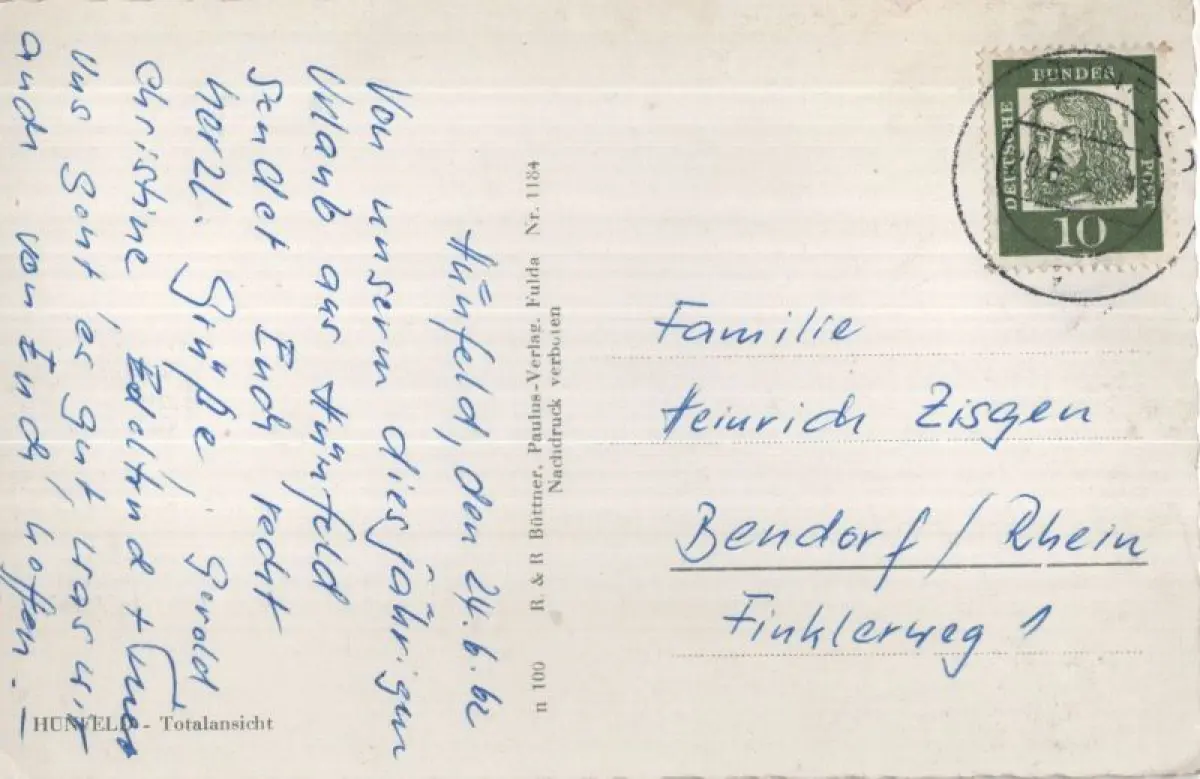 Hünfeld, den 24.6.62
Von unserm diesjährigen
Urlaub aus Hünfeld
sendet Euch recht
herzl. Grüße Gerold
Christine, Edeltrud +
Uns geht es gut, was wir
auch von Euch hoffen. -
HÜNFELD - Totalansicht
n 100 R. & R. Büttner, Paulus-Verlag, Fulda Nr. 1184
Nachdruck verboten
DEUTSCHE
BUNDES
POST
10
Familie
Heinrich Zisgen
Bendorf / Rhein
Finklerweg 1